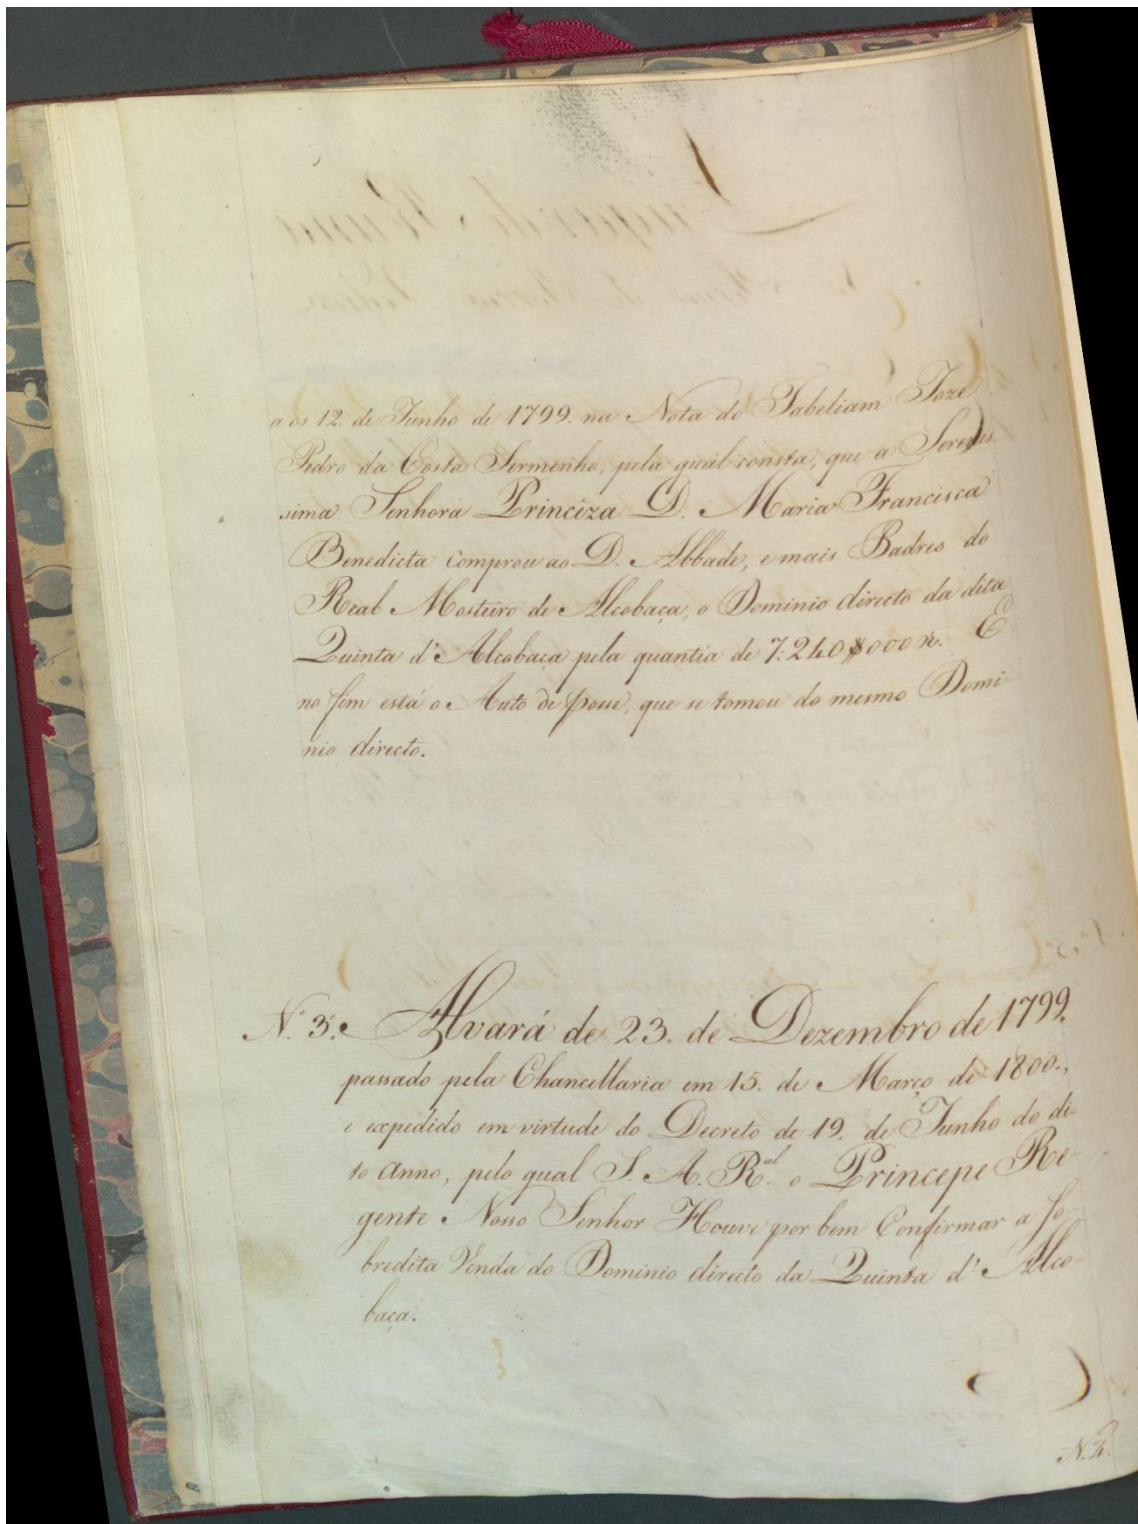 aos 12. de Junho de 1799. na Nota do Tabeliam Joze
Pedro da Costa Sermenho, pela qual consta, que a Serenis
sima Senhora Princeza D. Maria Francisca
Benedicta comprou ao D. Abbade, e mais Padres do
Real Mosteiro de Alcobaça, o Dominio directo da dita
Quinta d'Alcobaça pela quantia de 7:240$000 r.s E
no fim está o Auto de posse, que se tomou do mesmo Domi-
nio directo.
N. 3. Alvará de 23. de Dezembro de 1799.
passado pela Chancellaria em 15. de Março de 1800.,
e expedido em virtude do Decreto de 19. de Junho do di-
to anno, pelo qual S. A. R.al o Principe Re-
gente Nosso Senhor Houve por bem Confirmar a so-
bredita Venda do Dominio directo da Quinta d'Alco-
baça.
N. 4.